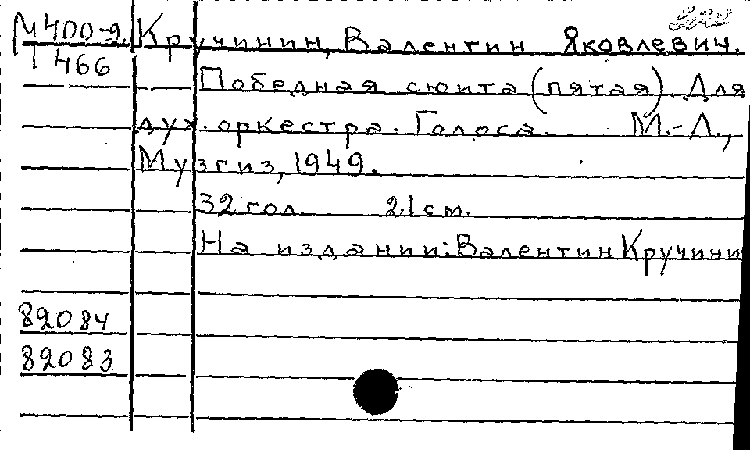 М 400-9. Кручинин, Валентин Яковлевич.
1466
Победная сюита (пятая). Для
дух. оркестра. Голоса. М.-Л.,
Музгиз, 1949.
32 гол. 21 см.
На издании: Валентин Кручини
82084
82083